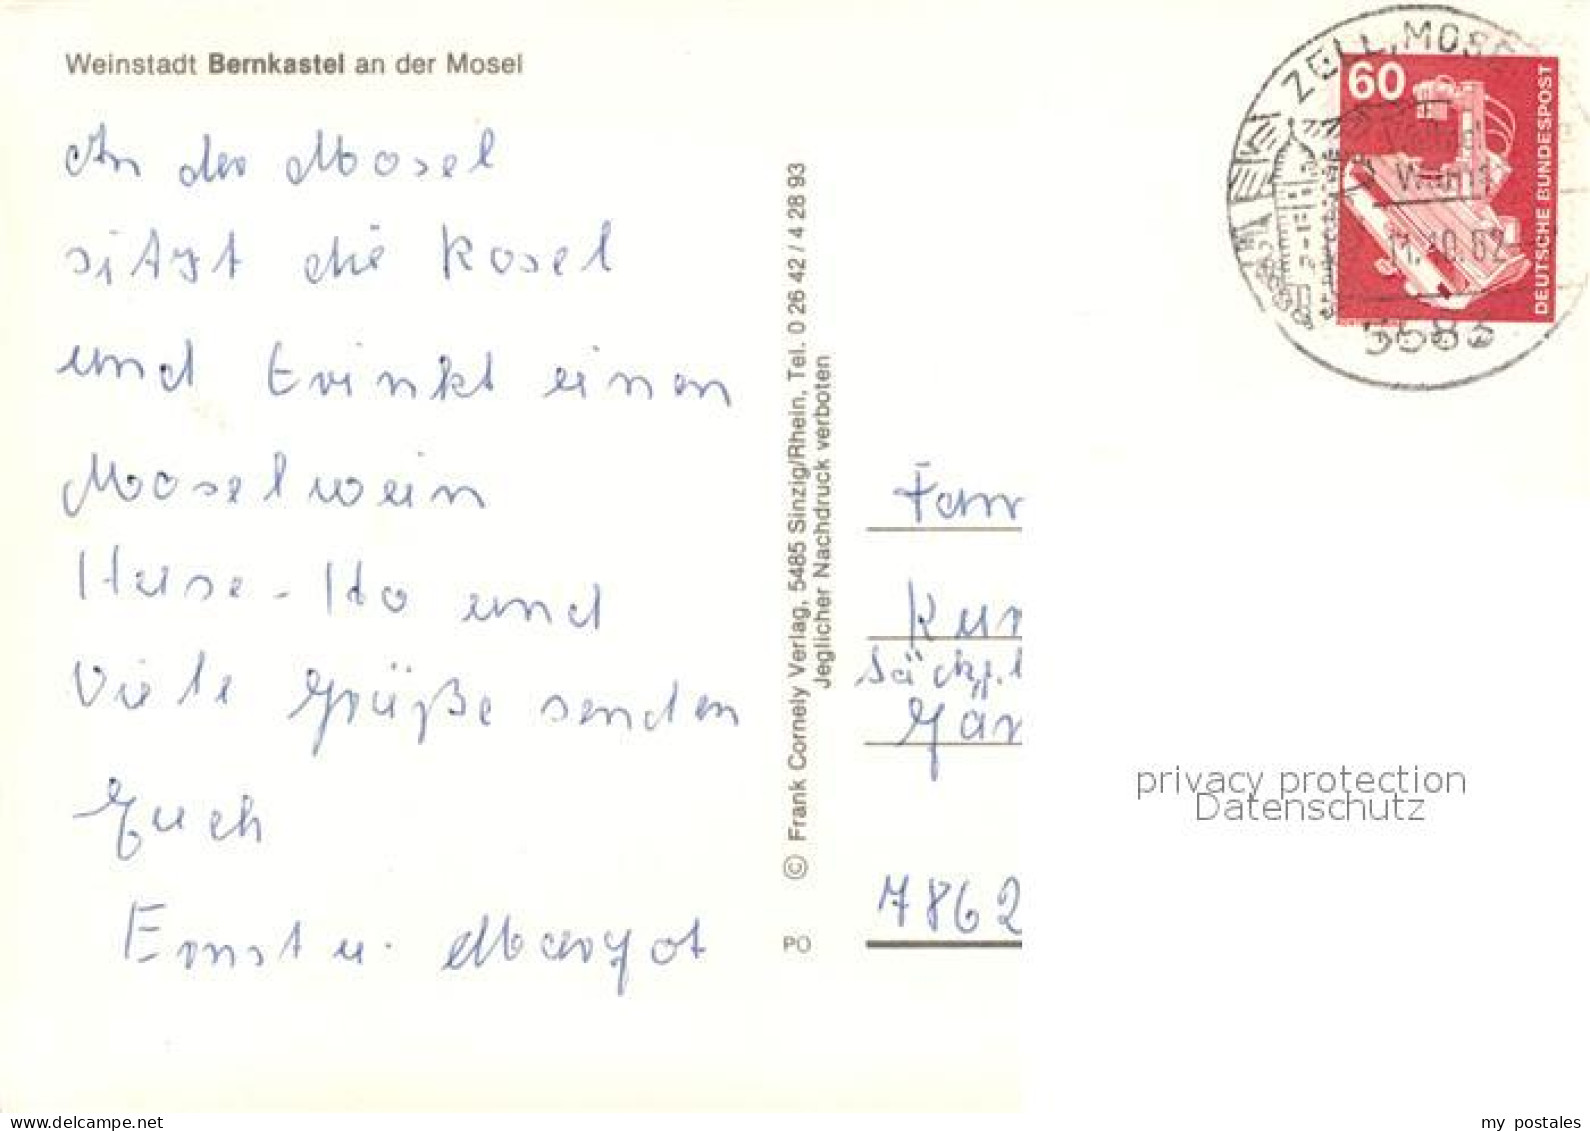 Weinstadt Bernkastel an der Mosel
An der Mosel
sitzt die Rosel
und trinkt einen
Moselwein
Husa-Ho und
Viele Grüße senden
Euch
Ernst u. Margot
© Frank Cornely Verlag, 5485 Sinzig/Rhein, Tel. 0 26 42 / 4 28 93
Jeglicher Nachdruck verboten
PO
ZELL, MOSEL
60
DEUTSCHE BUNDESPOST
11.10.82
5583
Fam
Kur
Gär
7862
privacy protection
Datenschutz
my postales